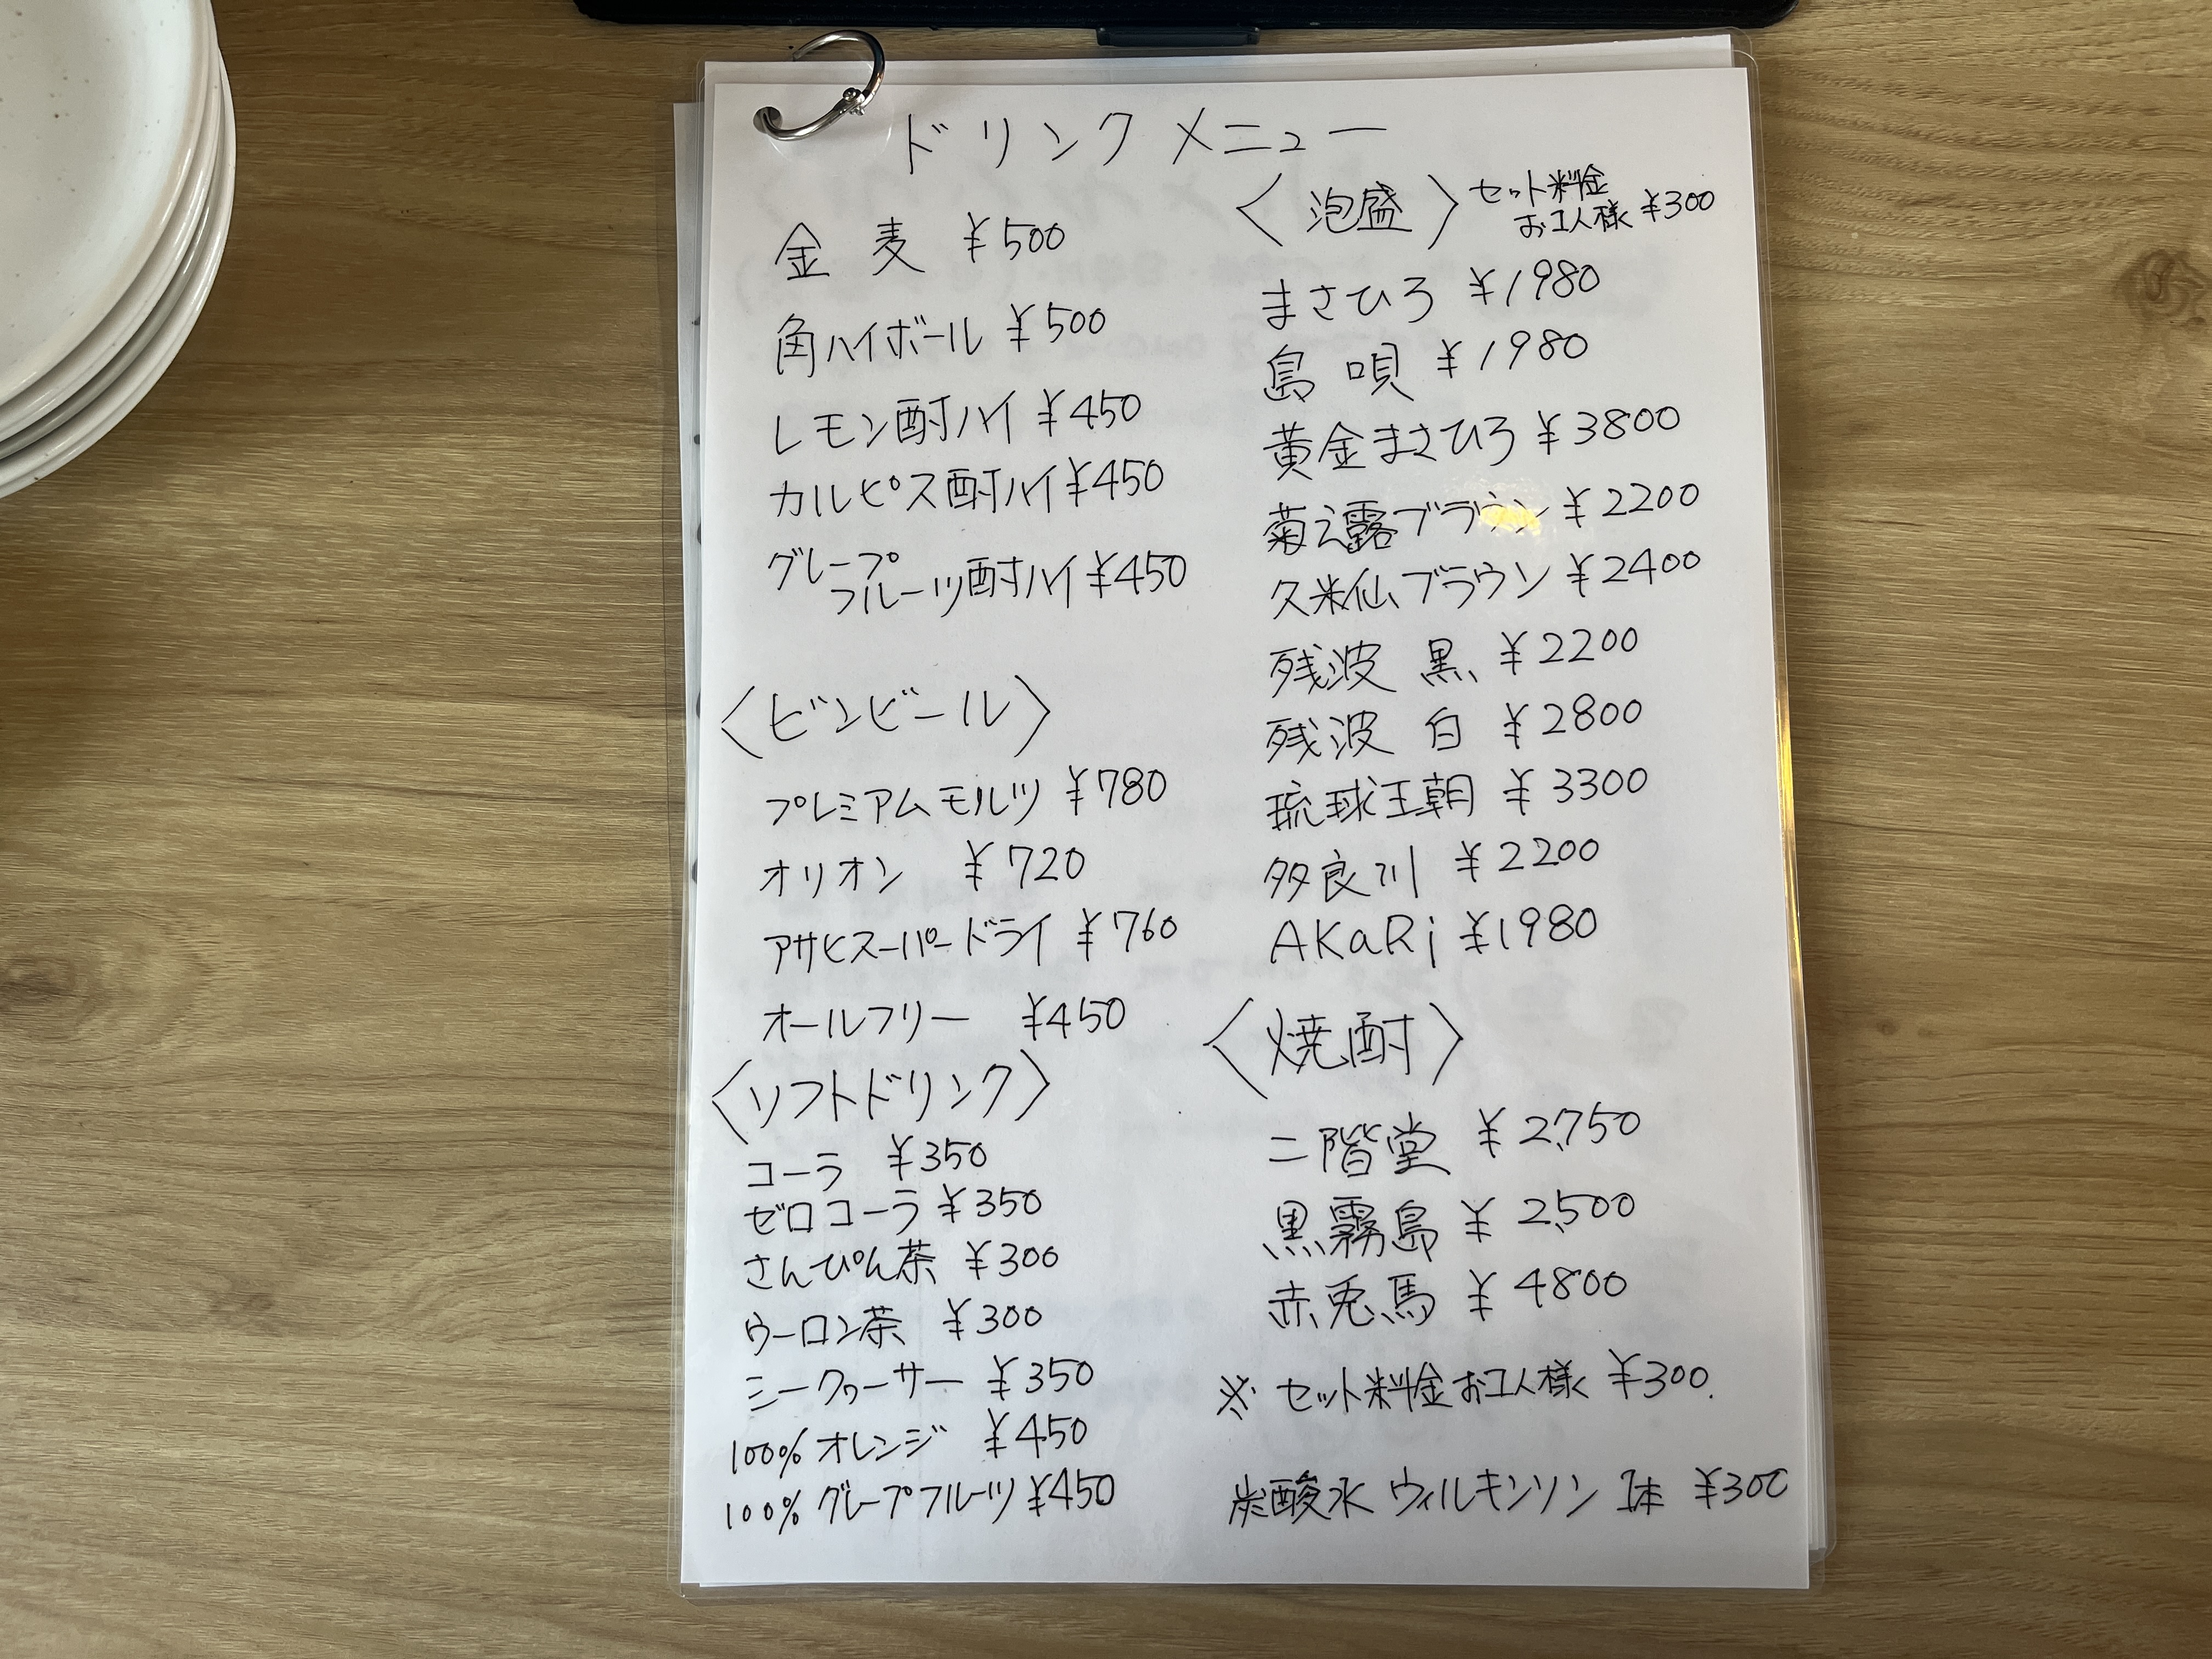 ドリンクメニュー
金麦 ¥500
角ハイボール ¥500
レモン酎ハイ ¥450
カルピス酎ハイ ¥450
グレープ
フルーツ酎ハイ ¥450
〈ビンビール〉
プレミアムモルツ ¥780
オリオン ¥720
アサヒスーパードライ ¥760
オールフリー ¥450
〈ソフトドリンク〉
コーラ ¥350
ゼロコーラ ¥350
さんぴん茶 ¥300
ウーロン茶 ¥300
シークヮーサー ¥350
100% オレンジ ¥450
100% グレープフルーツ ¥450
〈泡盛〉 セット料金
お1人様 ¥300
まさひろ ¥1980
島唄 ¥1980
黄金まさひろ ¥3800
菊之露ブラウン ¥2200
久米仙ブラウン ¥2400
残波 黒 ¥2200
残波 白 ¥2800
琉球王朝 ¥3300
多良川 ¥2200
AKaRi ¥1980
〈焼酎〉
二階堂 ¥2,750
黒霧島 ¥2,500
赤兎馬 ¥4800
※ セット料金お1人様 ¥300.
炭酸水 ウィルキンソン 1本 ¥300